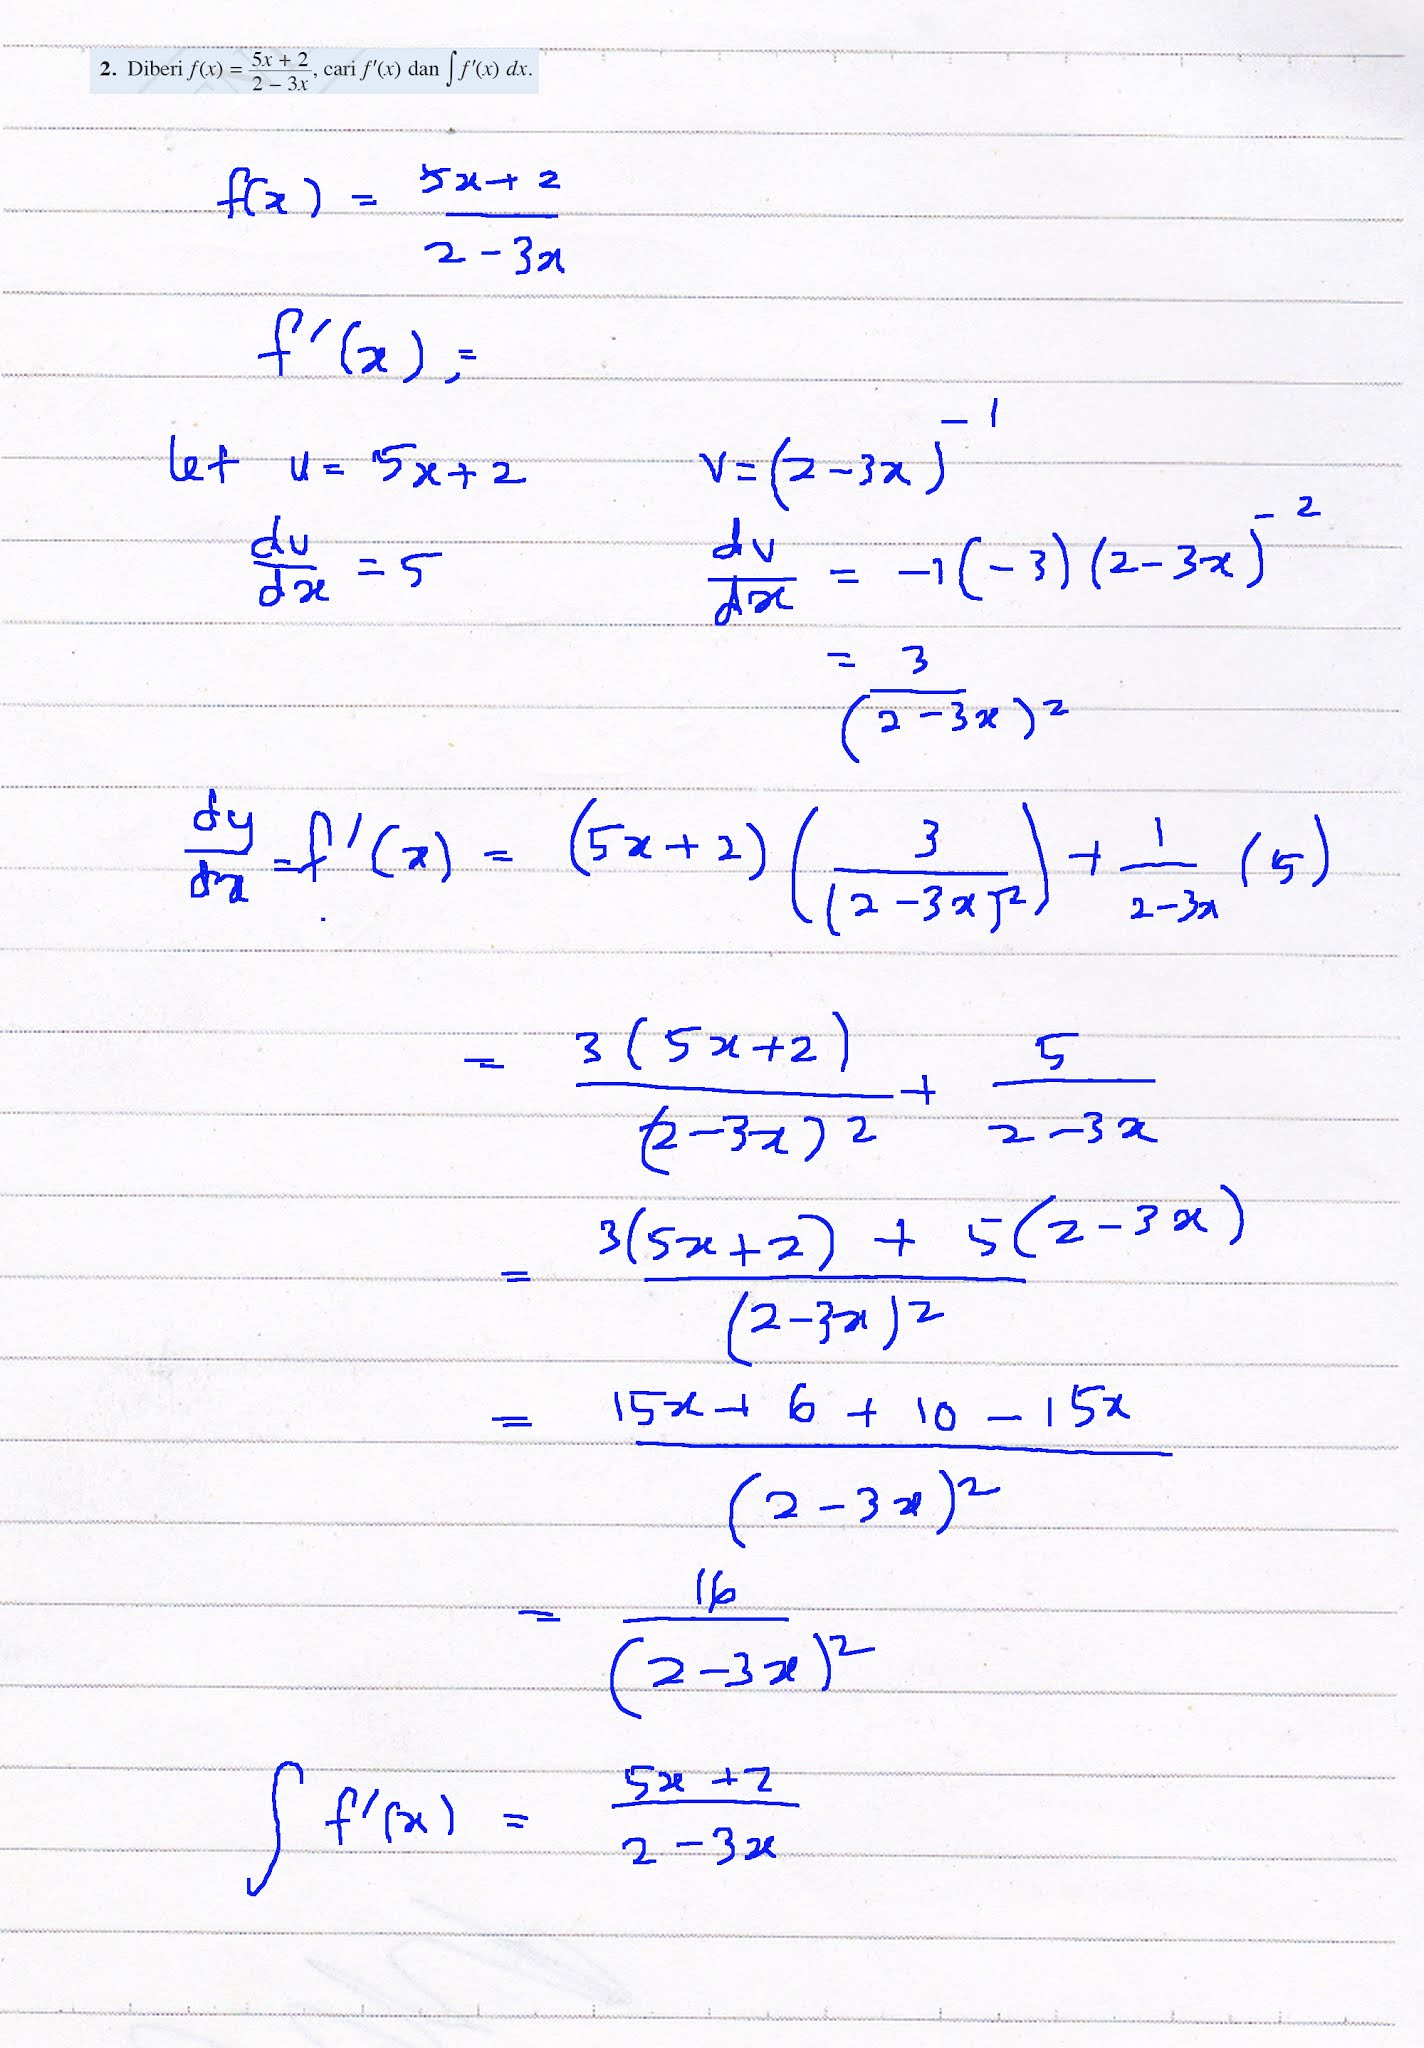 2. Diberi f(x) = (5x + 2)/(2 − 3x), cari f'(x) dan ∫ f'(x) dx.
f(x) = (5x + 2)/(2 - 3x)
f'(x) ;=
let u = 5x + 2    v = (2 - 3x)^-1
du/dx = 5    dv/dx = -1(-3)(2 - 3x)^-2
= 3/(2 - 3x)^2
dy/dx = f'(x) = (5x + 2)(3/(2 - 3x)^2) + 1/(2 - 3x) (5)
= 3(5x + 2)/(2 - 3x)^2 + 5/(2 - 3x)
= (3(5x + 2) + 5(2 - 3x))/(2 - 3x)^2
= (15x + 6 + 10 - 15x)/(2 - 3x)^2
= 16/(2 - 3x)^2
∫ f'(x) = (5x + 2)/(2 - 3x)